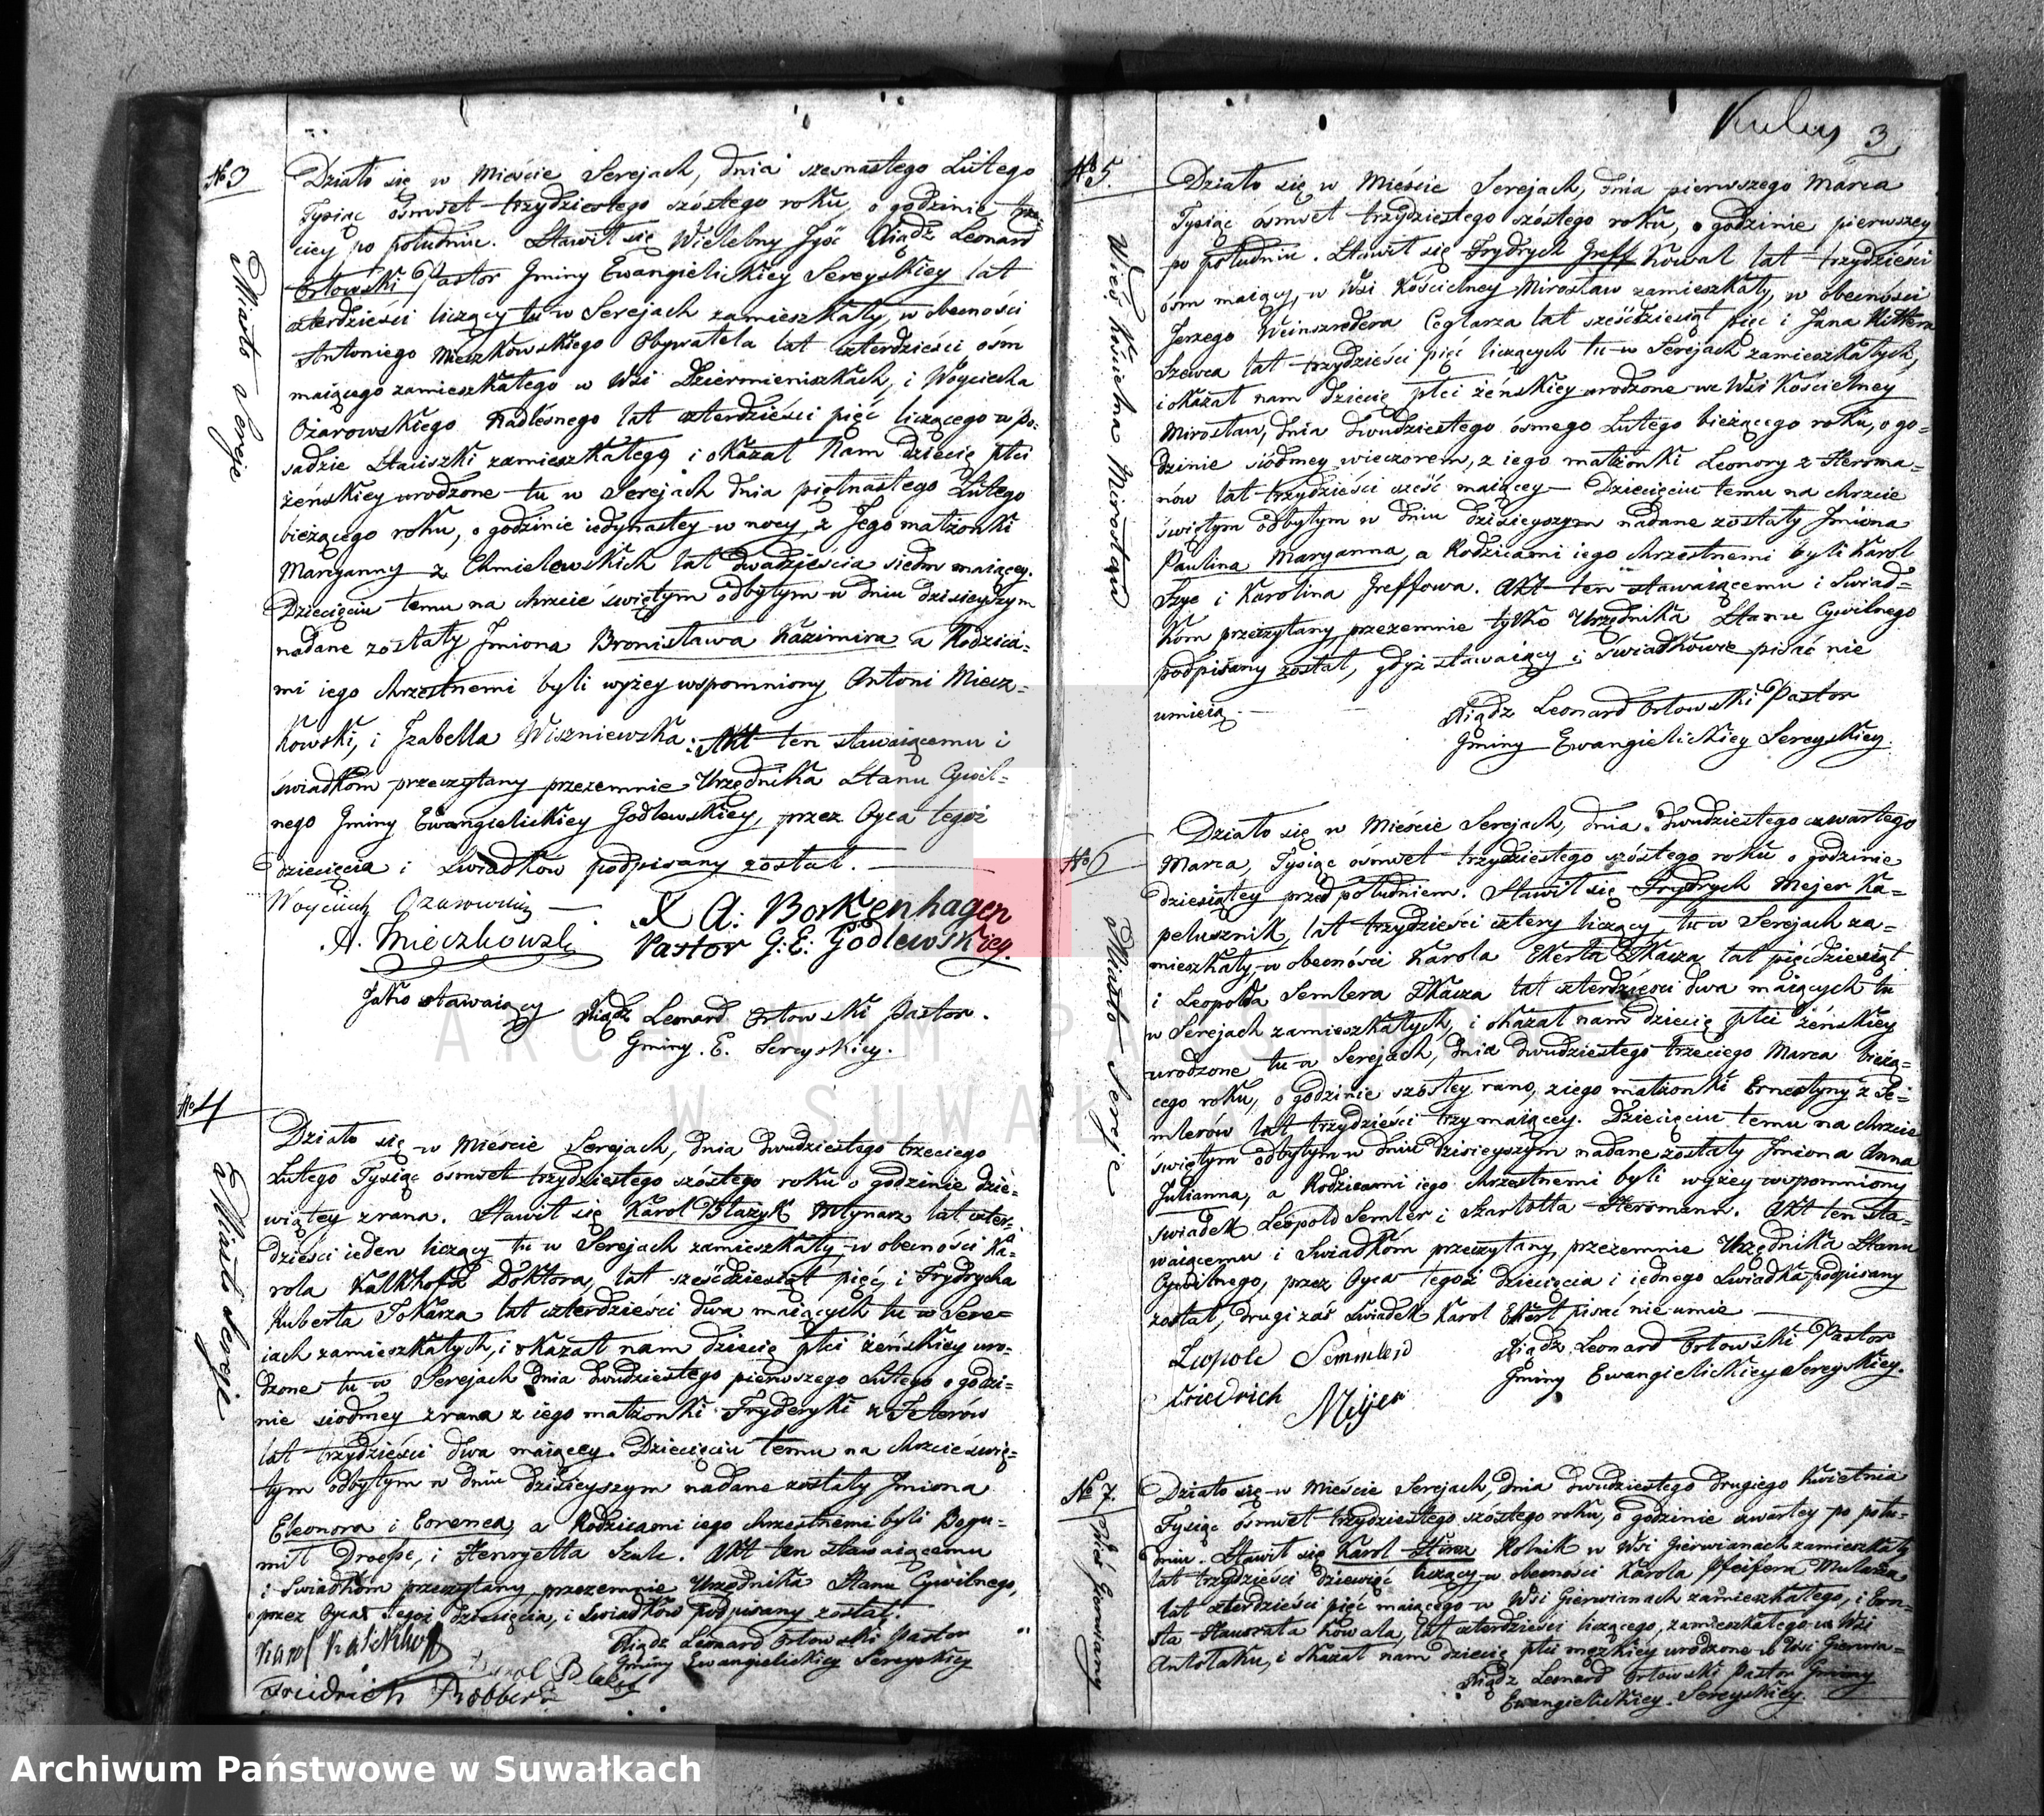 No 3
Miasto Sereje
Działo się w Mieście Serejach, dnia szesnastego Lutego
Tysiąc ośmset trzydziestego szóstego roku, o godzinie trze-
ciey po południu. Stawił się Wielebny Jgść Xiądz Leonard
Orłowski Pastor Gminy Ewangielickiey Sereyskiey lat
czterdzieści liczący tu w Serejach zamieszkały, w obecności
Antoniego Mieczkowskiego Obywatela lat czterdzieści ośm
maiącego zamieszkałego w Wsi Dziermieniszkach, i Woyciecha
Ożarowskiego Nadleśnego lat czterdzieści pięć liczącego w po-
sadzie Staciszki zamieszkałego i okazał Nam dziecię płci
żeńskiey urodzone tu w Serejach dnia piętnastego Lutego
bieżącego roku, o godzinie iedynastey w nocy, z Jego małżonki
Maryanny z Chmielewskich lat dwadzieścia siedm maiącey.
Dziecięciu temu na chrzcie świętym odbytym w dniu dzisieyszym
nadane zostały Jmiona Bronisława Kazimira a Rodzica-
mi iego chrzestnemi byli wyżey wspomniony Antoni Miecz-
kowski, i Jzabella Wiszniewska. Akt ten stawaiącemu i
świadkom przeczytany przezemnie Urzędnika Stanu Cywil-
nego Gminy Ewangielickiey Godlewskiey, przez Oyca tegoż
dziecięcia i świadków podpisany został.
Woyciech
X A: Borkenhagen
A. Mieczkowski
Pastor G: E: Godlewskiey.
Jako stawaiący
Xiądz Leonard Orłowski Pastor.
Gminy. E. Sereyskiey.
No 4
Miasto Sereje
Działo się w Mieście Serejach, dnia dwudziestego trzeciego
Lutego Tysiąc ośmset trzydziestego szóstego roku o godzinie dzie-
wiątey zrana. Stawił się Karol Błazyk Młynarz lat czter-
dzieści ieden liczący tu w Serejach zamieszkały, w obecności Ka-
rola Kalkhofa Doktora, lat sześćdziesiąt pięć, i Frydrycha
Ruberta Tokarza lat czterdzieści dwa maiących tu w Sere-
iach zamieszkałych, i okazał nam dziecię płci żeńskiey uro-
dzone tu w Serejach dnia dwudziestego pierwszego Lutego o godzi-
nie siódmey zrana z iego małżonki Fryderyki z
lat trzydzieści dwa maiącey. Dziecięciu temu na chrzcie świę-
tym odbytym w dniu dzisieyszym nadane zostały Jmiona
Eleonora i Lorenca, a Rodzicami iego chrzestnemi byli Bogu-
mił Droese, i Henryetta Szulc. Akt ten stawaiącemu
i świadkom przeczytany, przezemnie Urzędnika Stanu Cywilnego,
przez Oyca tegoż dziecięcia, i świadków podpisany został.
Karol Kalckhoff
Xiądz Leonard Orłowski Pastor
Gminy Ewangielickiey Sereyskiey
Karol
Friedrich
3
No 5.
Wieś Kościelna Mirosław
Działo się w Mieście Serejach, dnia pierwszego Marca
Tysiąc ośmset trzydziestego szóstego roku, o godzinie pierwszey
po południu. Stawił się Frydrych Greff Kowal lat trzydzieści
ośm maiący, w Wsi Kościelney Mirosław zamieszkały, w obecności
Jerzego Weinszredera Ceglarza lat sześćdziesiąt pięć i Jana Kittera
Szewca lat trzydzieści pięć liczących tu w Serejach zamieszkałych,
i okazał nam dziecię płci żeńskiey urodzone we Wsi Kościelney
Mirosław, dnia dwudziestego ósmego Lutego bieżącego roku, o go-
dzinie siódmey wieczorem, z iego małżonki Leonory z Herma-
nów lat trzydzieści sześć maiącey— Dziecięciu temu na chrzcie
świętym odbytym w dniu dzisieyszym nadane zostały Jmiona
Paulina Maryanna, a Rodzicami iego chrzestnemi byli Karol
Szyc i Karolina Greffowa. Akt ten stawaiącemu i Świad-
kom przeczytany, przezemnie tylko Urzędnika Stanu Cywilnego
podpisany został, gdyż stawaiący i świadkowie pisać nie
umieią.
Xiądz Leonard Orłowski Pastor
Gminy Ewangielickiey Sereyskiey.
No 6
Miasto Sereje
Działo się w Mieście Serejach, dnia dwudziestego czwartego
Marca, Tysiąc ośmset trzydziestego szóstego roku o godzinie
dziesiątey przed południem. Stawił się Frydrych Mejer Ka-
pelusznik, lat trzydzieści cztery liczący, tu w Serejach za-
mieszkały, w obecności Karola Ekerta Tkacza lat pięćdziesiąt
i Leopolda Semlera Tkacza lat czterdzieści dwa maiących tu
w Serejach zamieszkałych, i okazał nam dziecię płci żeńskiey
urodzone tu w Serejach, dnia dwudziestego trzeciego Marca bieżą-
cego roku, o godzinie szóstey rano, z iego małżonki Ernestyny z Se-
mlerów lat trzydzieści trzy maiącey. Dziecięciu temu na chrzcie
świętym odbytym w dniu dzisieyszym nadane zostały Jmiona Anna
Julianna, a Rodzicami iego chrzestnemi byli wyżey wspomniony
świadek Leopold Semler i Szarlotta Hersmann. Akt ten sta-
waiącemu i Świadkom przeczytany, przezemnie Urzędnika Stanu
Cywilnego, przez Oyca tegoż dziecięcia i iednego Świadka podpisany
został, drugi zaś Świadek Karol Ekert pisać nie umie
Leopold Semmler
Xiądz Leonard Orłowski Pastor
Gminy Ewangielickiey Sereyskiey.
Friedrich Mejer
No 7.
Wieś Gierwiany
Działo się w Mieście Serejach, dnia dwudziestego drugiego Kwietnia
Tysiąc ośmset trzydziestego szóstego roku, o godzinie czwartey po połu-
dniu. Stawił się Karol Rolnik w Wsi Gierwianach zamieszkały
lat trzydzieści dziewięć liczący w obecności Karola Pfeifera Mularza
lat czterdzieści pięć maiącego w Wsi Gierwianach zamieszkałego, i Ern-
sta Kowala, lat czterdzieści liczącego, zamieszkałego w Wsi
Antołaku, i okazał nam dziecię płci męzkiey urodzone w Wsi Gierwia-
Xiądz Leonard Orłowski Pastor Gminy
Ewangielickiey Sereyskiey.
ARCHIWUM PAŃSTWOWE
W SUWAŁKACH
Archiwum Państwowe w Suwałkach